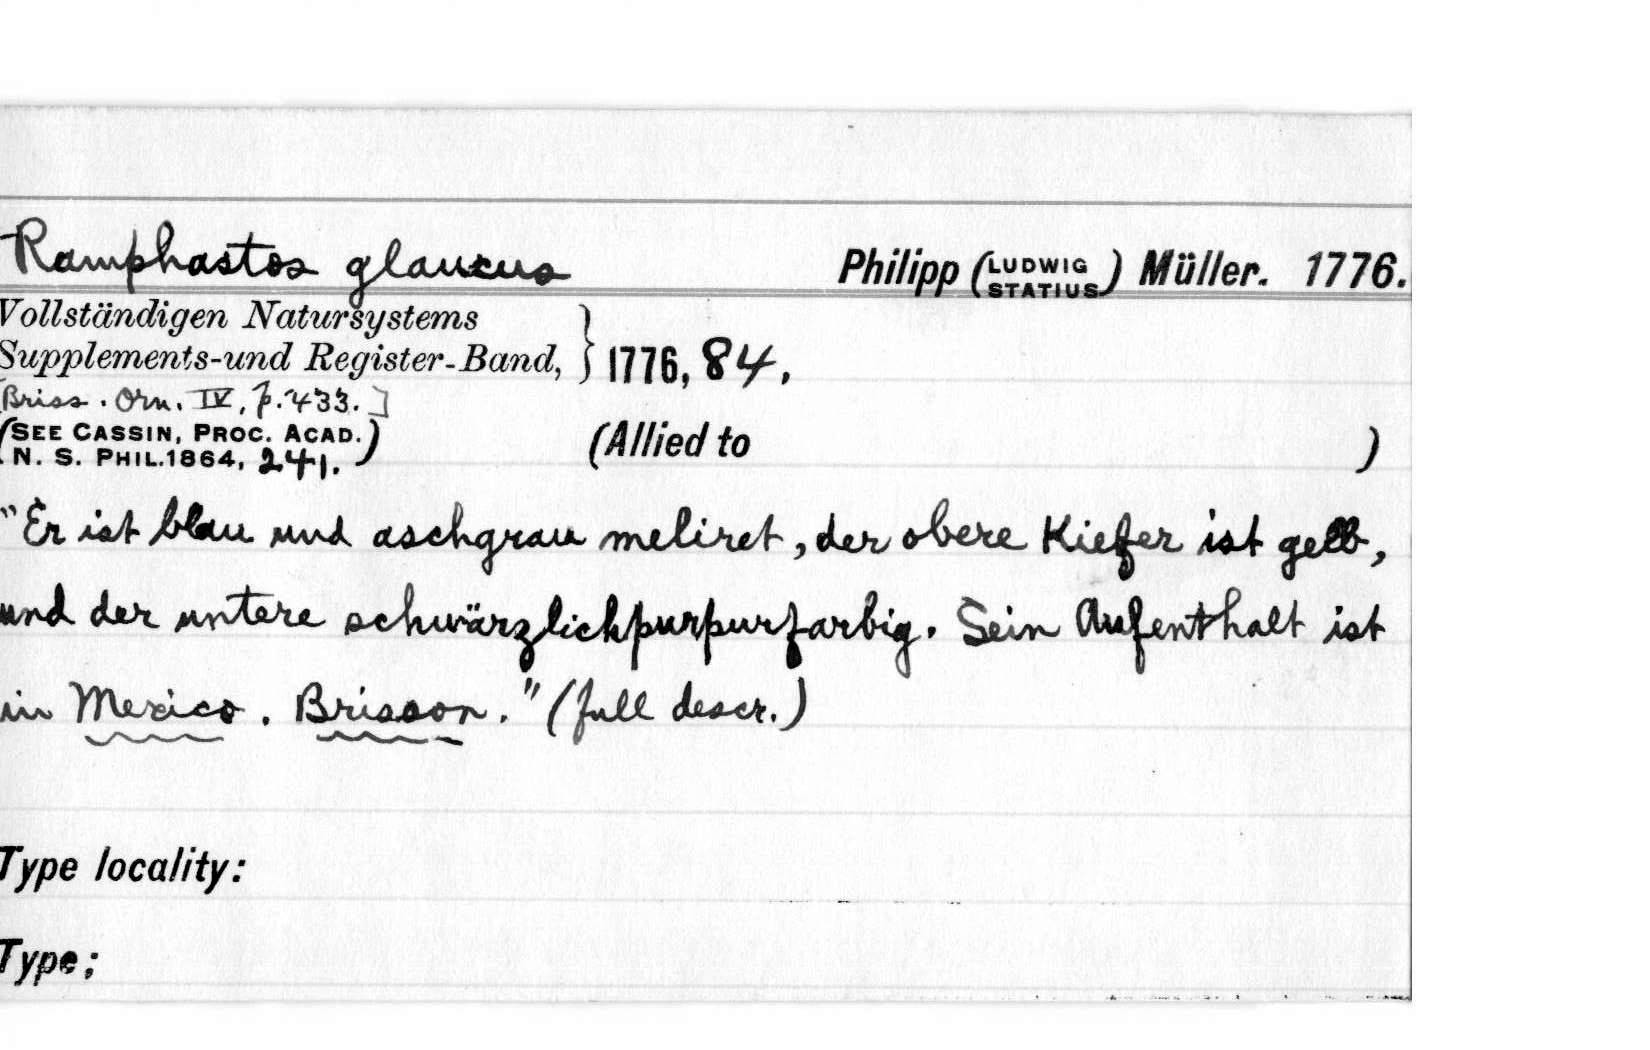 Ramphastos glaucus Philipp (LUDWIG STATIUS) Müller. 1776.
Vollständigen Natursystems
Supplements-und Register-Band, } 1776, 84.
[Briss. Orn. IV, p. 433.]
(SEE CASSIN, PROC. ACAD. (Allied to )
N. S. PHIL. 1864, 241.)
"Er ist blau und aschgrau meliret, der obere Kiefer ist gelb,
und der untere schwärzlichpurpurfarbig. Sein Aufenthalt ist
in Mexico. Brisson." (full descr.)
Type locality:
Type;